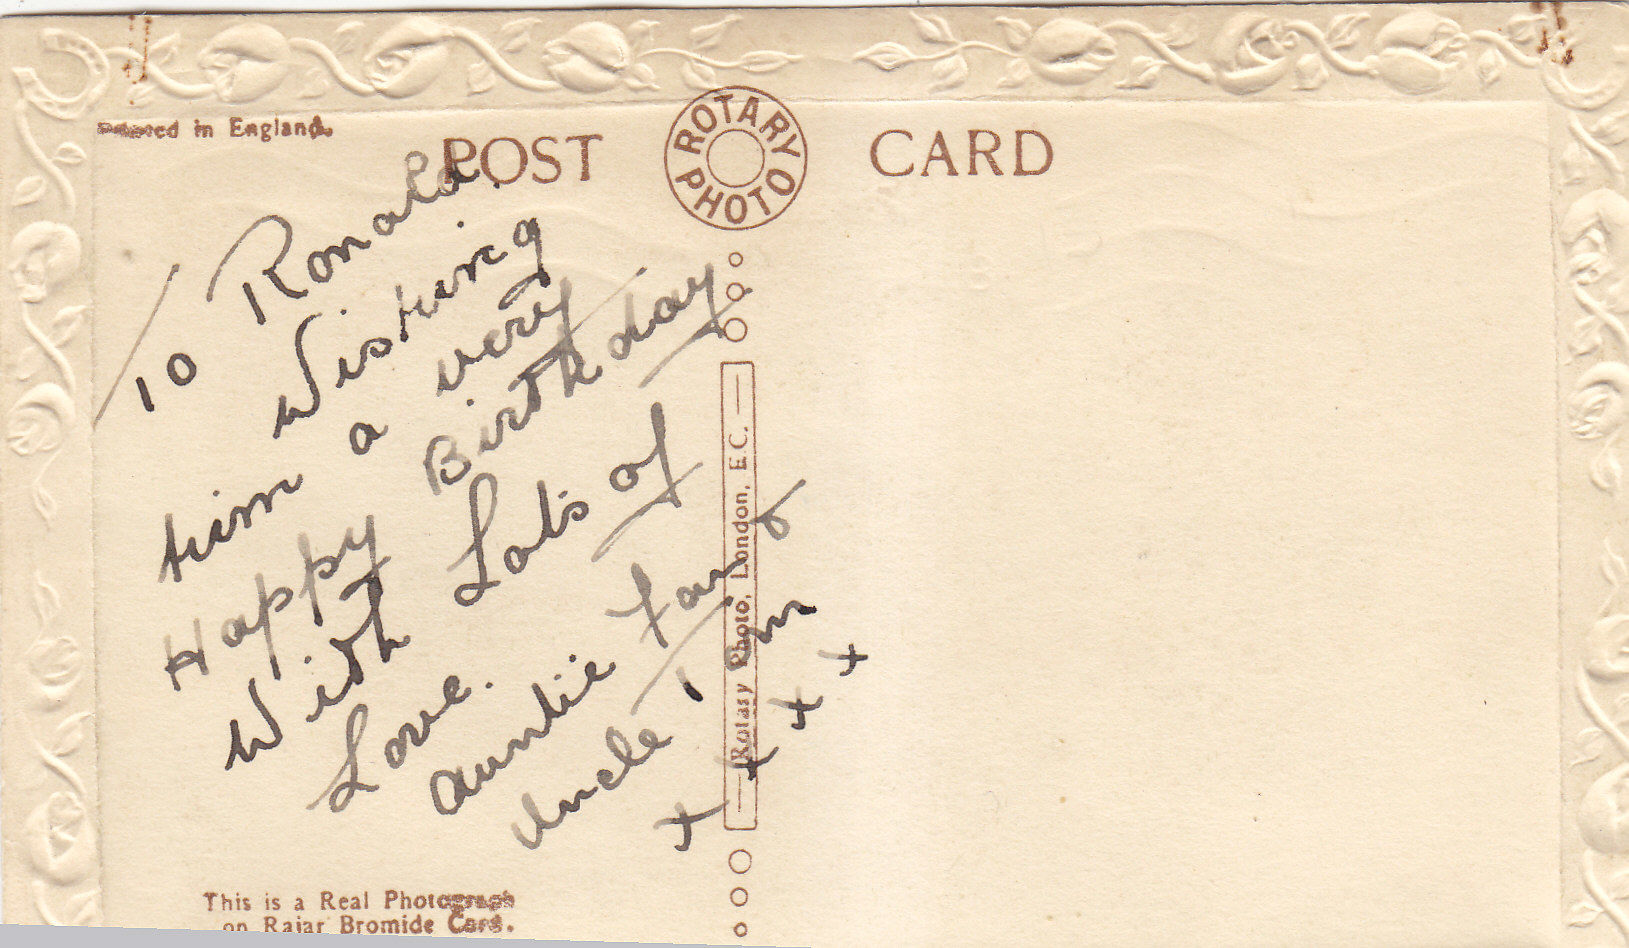 Printed in England.
POST CARD
ROTARY PHOTO
To Ronald.
Wishing
him a very
Happy Birthday
With Lots of
Love.
Auntie Fan &
Uncle Tom
x x x x
Rotary Photo, London, E.C.
This is a Real Photograph
on Rajar Bromide Card.